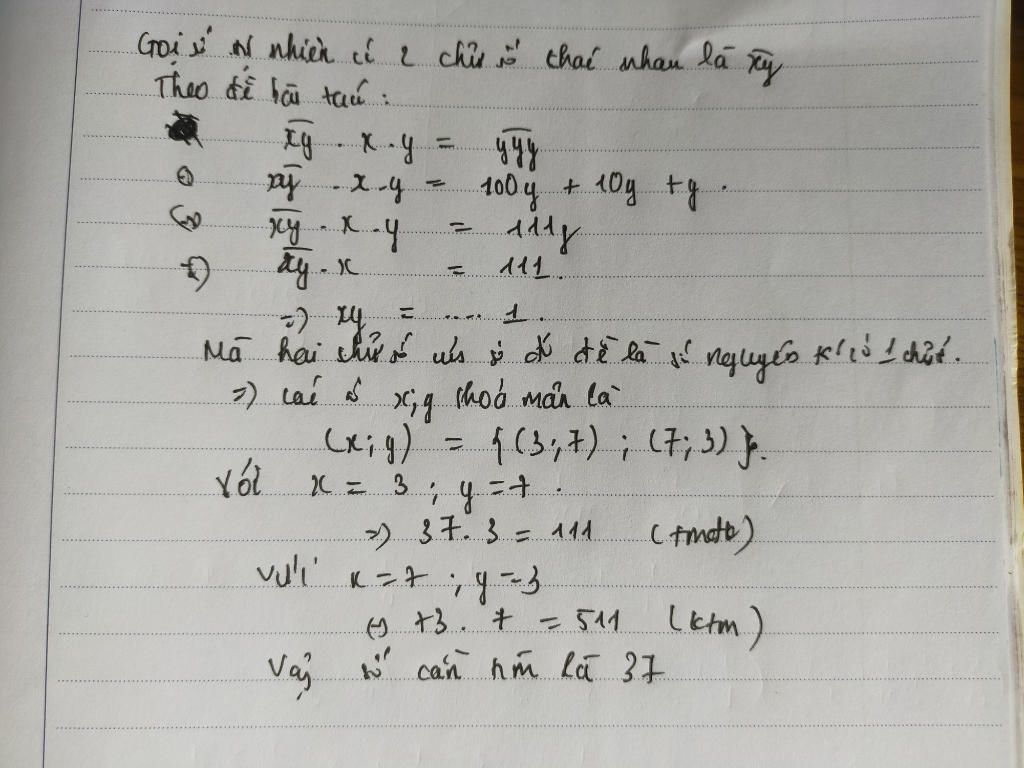 Gọi số tự nhiên có 2 chữ số khác nhau là x̅y̅
Theo đề bài ta có:
x̅y̅ . x . y = y̅y̅y̅
⇔ x̅y̅ . x . y = 100y + 10y + y .
⇔ x̅y̅ . x . y = 111y
⇔ x̅y̅ . x = 111.
=> xy = .... 1 .
Mà hai chữ số số đó đề là số nguyên có 1 chữ .
=> các số x;y thoả mãn là
(x;y) = { (3;7) ; (7;3) }.
Với x = 3 ; y = 7 .
=> 37. 3 = 111 (tmđb)
Với x = 7 ; y = 3
⇔ 73 . 7 = 511 (ktm)
Vậy số cần tìm là 37